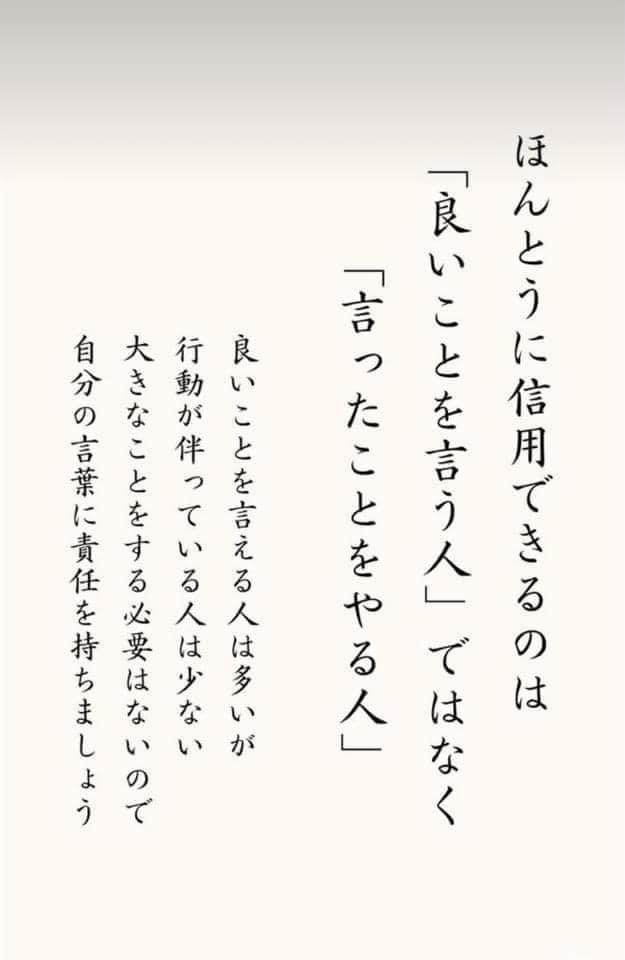 ほんとうに信用できるのは
「良いことを言う人」ではなく
「言ったことをやる人」
良いことを言える人は多いが
行動が伴っている人は少ない
大きなことをする必要はないので
自分の言葉に責任を持ちましょう